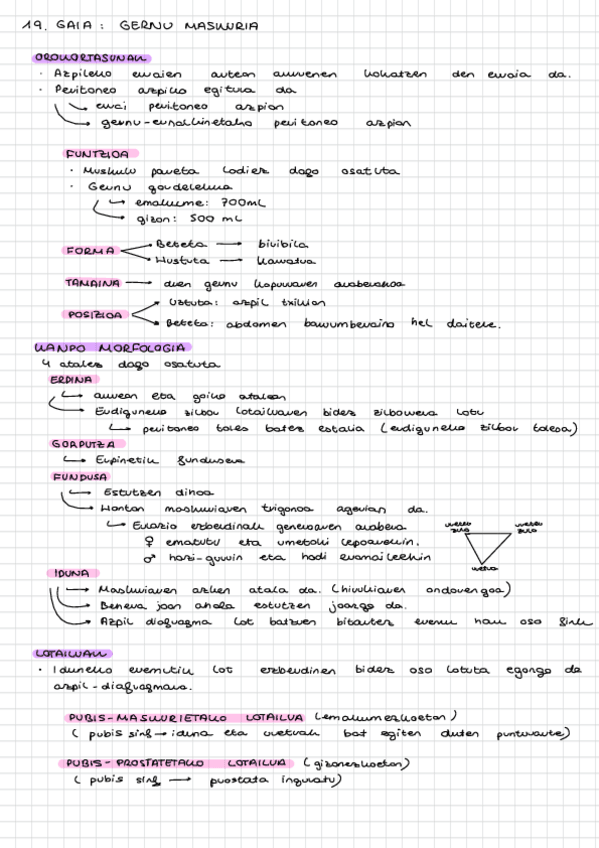 19. GAIA: GERNU MASKURIA
OROKORTASUNAK
· Azpileko eraien artean aurrenen kokatzen den erraia da.
· Peritoneo azpiko egitura da
↳ errai peritoneo azpian
↳ gernu-euskelinetako peritoneo azpian
FUNTZIOA
· Muskulu pareta lodiez dago osatuta
· Gernu gordelekua
↳ emakume: 700mL
↳ gizon: 500 mL
FORMA Beteta → biribila
Hustuta → kamatua
TAMAINA → duen gernu kopuruaren araberakoa
POSIZIOA Uztuta: azpil txikian
Beteta: abdomen barrumberaino hel daiteke.
KANPO MORFOLOGIA
4 atalez dago osatuta
ERDINA
↳ aurrean eta goiko atalean
↳ Erdiguneko zilbor lotailuaren bidez zilborrera lotu
↳ peritoneo toles batez estalia (erdiguneko zilbor tolesa)
GORPUTZA
↳ Erpinetik fundusera
FUNDUSA
↳ Estutzen dihoa
↳ Hontan maskuriaren trigonoa agerian da.
↳ Erlazio ezberdinak generoaren arabera
♀ ematutu eta umetoki lepoarekin.
♂ hazi-guruin eta hodi eramaileekin
ureter zulo ureter zulo
uretra
IDUNA
↳ Maskuriaren azken atala da. (hirukiaren ondorengoa)
↳ Behera joan ahala estutzen joango da.
↳ Azpil diafragma lot batzuen bitartez eremu hau oso finko
LOTAILUAK
· Iduneko eremutik lot ezberdinen bidez oso lotuta egongo da
azpil-diafragmara.
PUBIS-MASKURIETAKO LOTAILUA (emakumezkoetan)
(pubis sinf → iduna eta uretrak bat egiten duten punturarte)
PUBIS-PROSTATETAKO LOTAILUA (gizonezkoetan)
(pubis sinf → prostata inguratu)